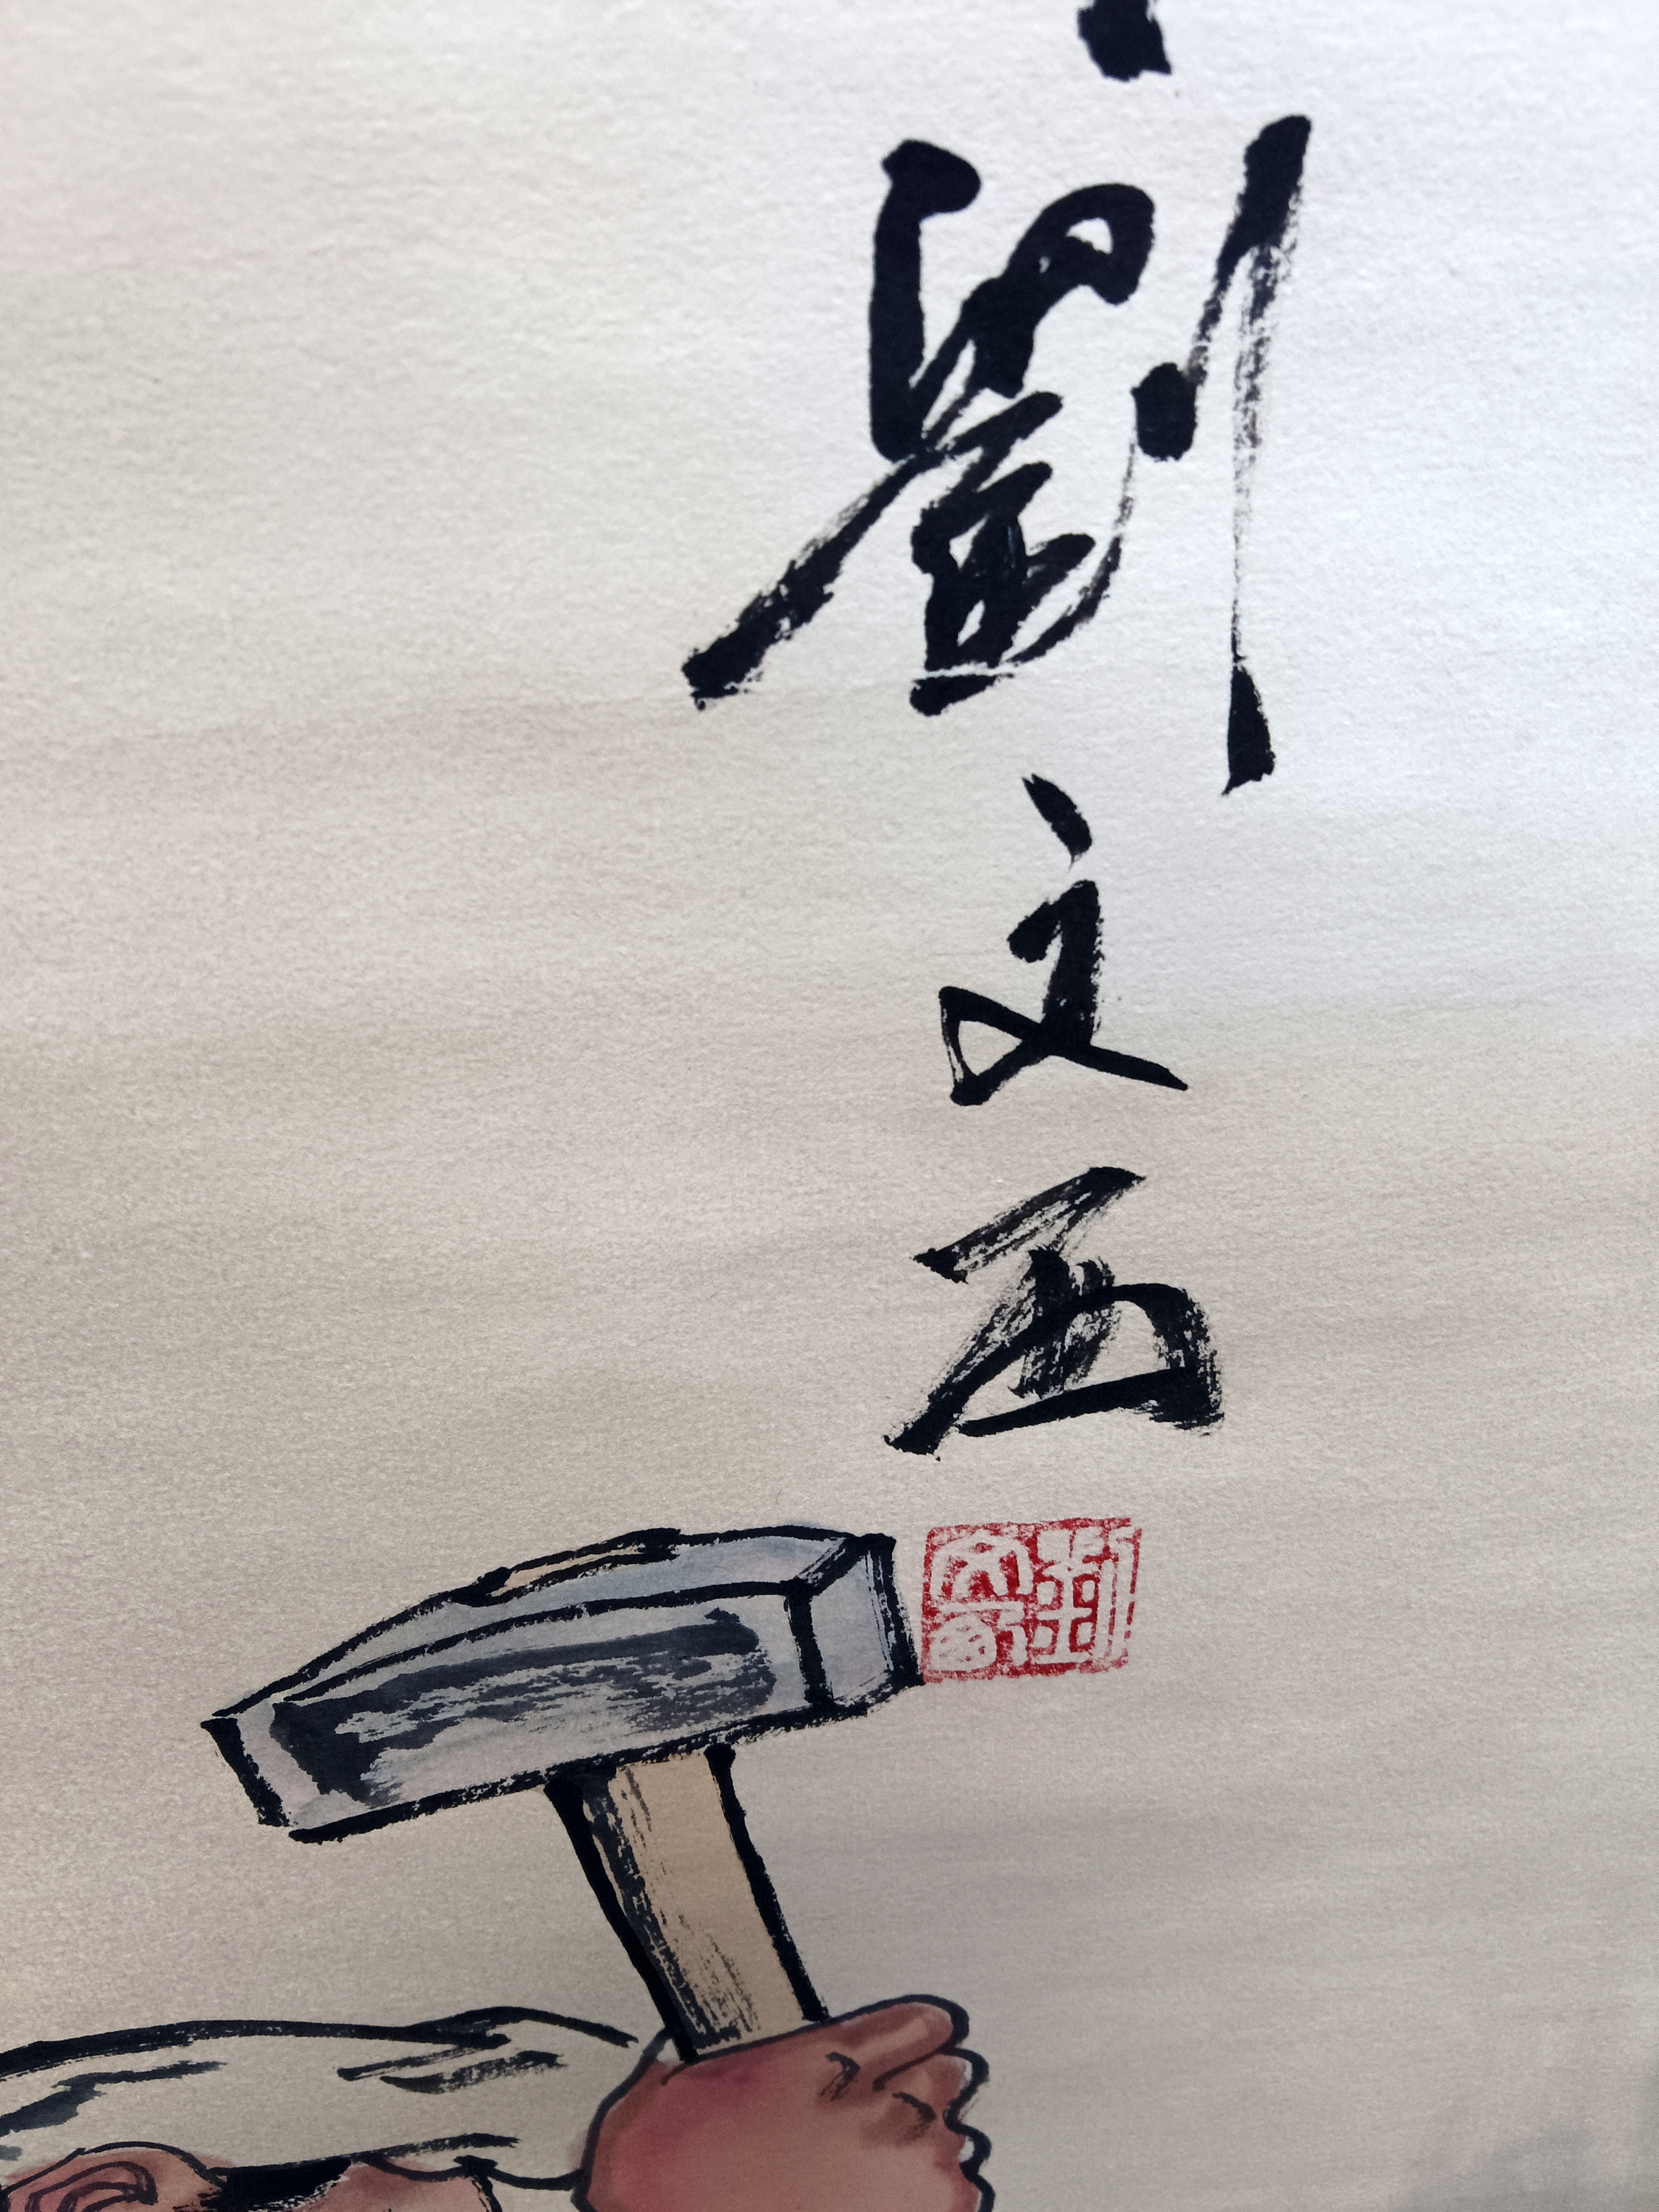 劉文西
劉文西